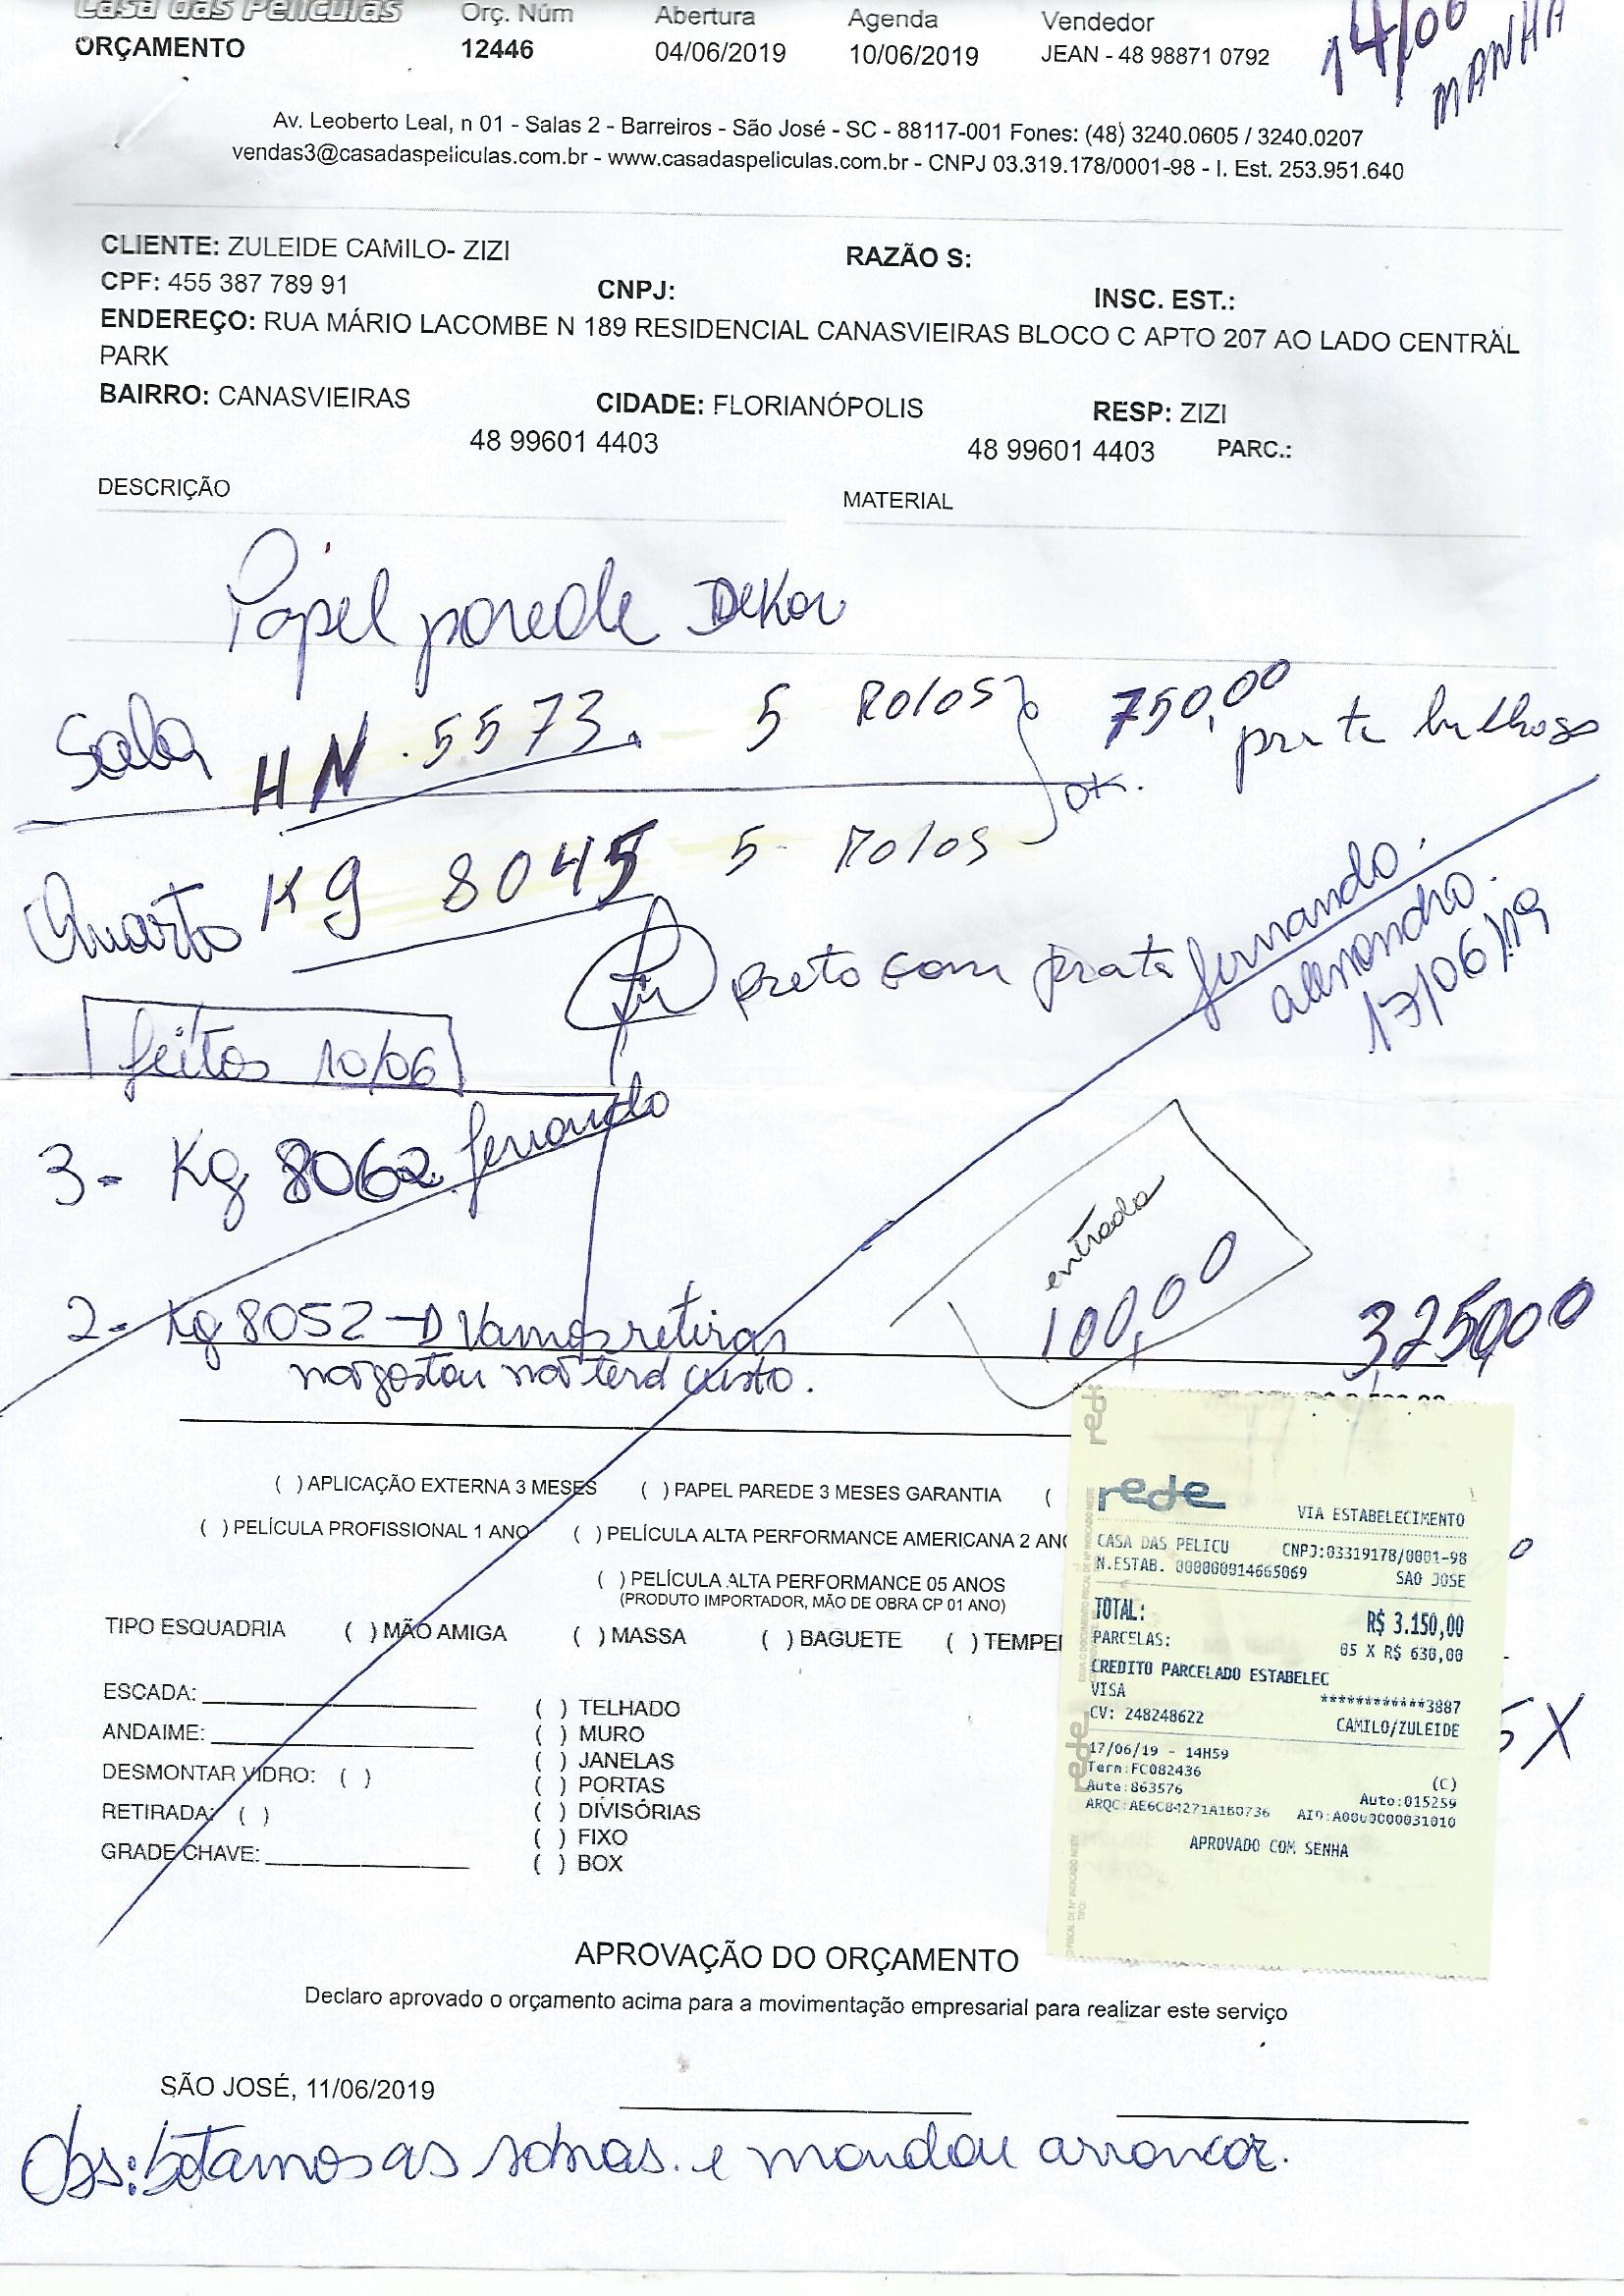 Casa das Películas
ORÇAMENTO
Orç. Núm
12446
Abertura
04/06/2019
Agenda
10/06/2019
Vendedor
JEAN - 48 98871 0792
14/06
MANHÃ
Av. Leoberto Leal, n 01 - Salas 2 - Barreiros - São José - SC - 88117-001 Fones: (48) 3240.0605 / 3240.0207
vendas3@casadaspeliculas.com.br - www.casadaspeliculas.com.br - CNPJ 03.319.178/0001-98 - I. Est. 253.951.640
CLIENTE: ZULEIDE CAMILO- ZIZI RAZÃO S:
CPF: 455 387 789 91 CNPJ: INSC. EST.:
ENDEREÇO: RUA MÁRIO LACOMBE N 189 RESIDENCIAL CANASVIEIRAS BLOCO C APTO 207 AO LADO CENTRAL
PARK
BAIRRO: CANASVIEIRAS CIDADE: FLORIANÓPOLIS RESP: ZIZI
48 99601 4403 48 99601 4403 PARC.:
DESCRIÇÃO MATERIAL
Papel parede Dekor
Sala HN.5573. 5 Rolos 750,00
prata
OK.
Quarto Kg 8045 5- Rolos
preto com prata fernando.
alessandro.
17/06/19
feitos 10/06
3- Kg 8062 fernando
entrada
100,00
2- Kg 8052 Vamos retirar
não gostou não terá custo.
3,250,00
( ) APLICAÇÃO EXTERNA 3 MESES ( ) PAPEL PAREDE 3 MESES GARANTIA (
( ) PELÍCULA PROFISSIONAL 1 ANO ( ) PELÍCULA ALTA PERFORMANCE AMERICANA 2 AN
( ) PELÍCULA ALTA PERFORMANCE 05 ANOS
(PRODUTO IMPORTADOR, MÃO DE OBRA CP 01 ANO)
TIPO ESQUADRIA ( ) MÃO AMIGA ( ) MASSA ( ) BAGUETE ( ) TEMPE
ESCADA:
ANDAIME:
DESMONTAR VIDRO: ( )
RETIRADA: ( )
GRADE CHAVE:
( ) TELHADO
( ) MURO
( ) JANELAS
( ) PORTAS
( ) DIVISÓRIAS
( ) FIXO
( ) BOX
rede
rede
VIA ESTABELECIMENTO
CASA DAS PELICU CNPJ:03319178/0001-98
N.ESTAB. 000000014665069 SAO JOSE
TOTAL: R$ 3.150,00
PARCELAS: 05 X R$ 630,00
CREDITO PARCELADO ESTABELEC
VISA ************3887
CV: 248248622 CAMILO/ZULEIDE
17/06/19 - 14H59
Term:FC082436 (C)
Aute:863576 Auto:015259
ARQC:AE6C84271A1B0736 AID:A0000000031010
APROVADO COM SENHA
rede
5X
APROVAÇÃO DO ORÇAMENTO
Declaro aprovado o orçamento acima para a movimentação empresarial para realizar este serviço
SÃO JOSÉ, 11/06/2019
Obs: botamos as sobras. e mandou arrancar.